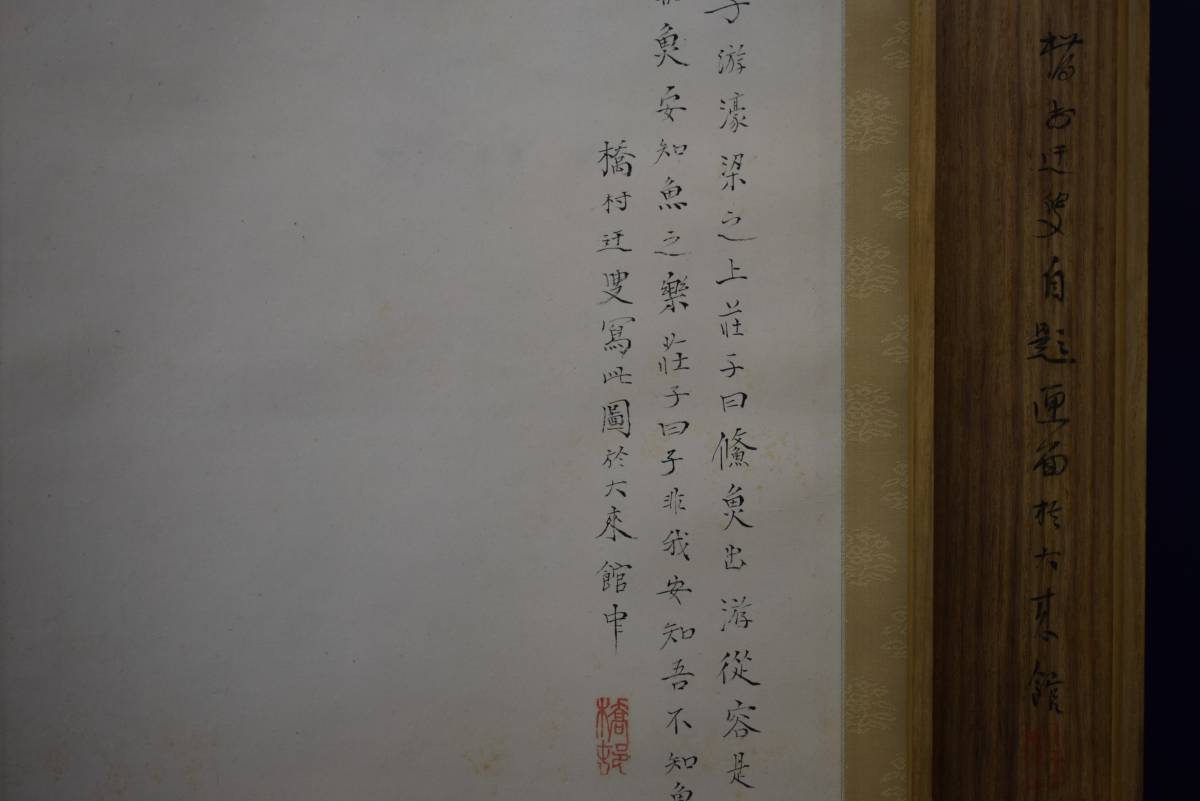 橋邨迂叟自題匣面於大來館
子游濠梁之上莊子曰鯈魚出游從容是
魚安知魚之樂莊子曰子非我安知吾不知魚
橋村迂叟寫此圖於大來館中
橋邨